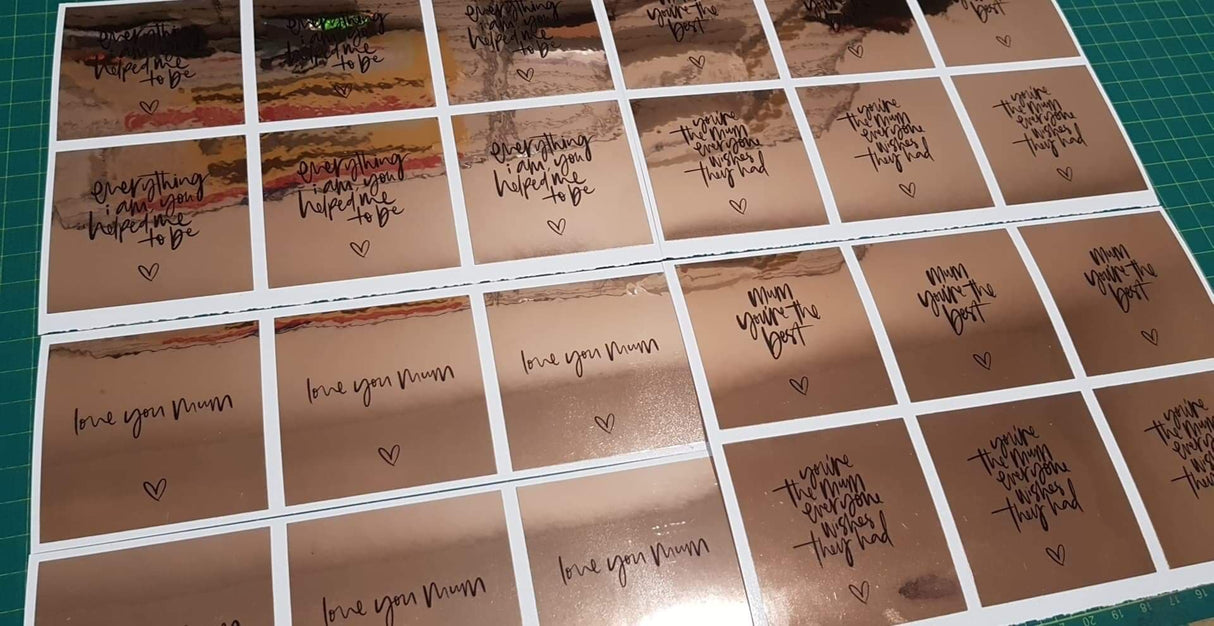 everything
i am you
helped me
to be
everything
i am you
helped me
to be
everything
i am you
helped me
to be
you're the
best
best
everything
i am you
helped me
to be
everything
i am you
helped me
to be
everything
i am you
helped me
to be
you're
the mum
everyone
wishes
they had
you're
the mum
everyone
wishes
they had
you're
the mum
everyone
wishes
they had
love you mum
love you mum
love you mum
mum
you're the
best
mum
you're the
best
mum
you're the
best
love you mum
love you mum
you're
the mum
everyone
wishes
they had
you're
the mum
everyone
wishes
they had
you're
the mum
20 19 18 17 16